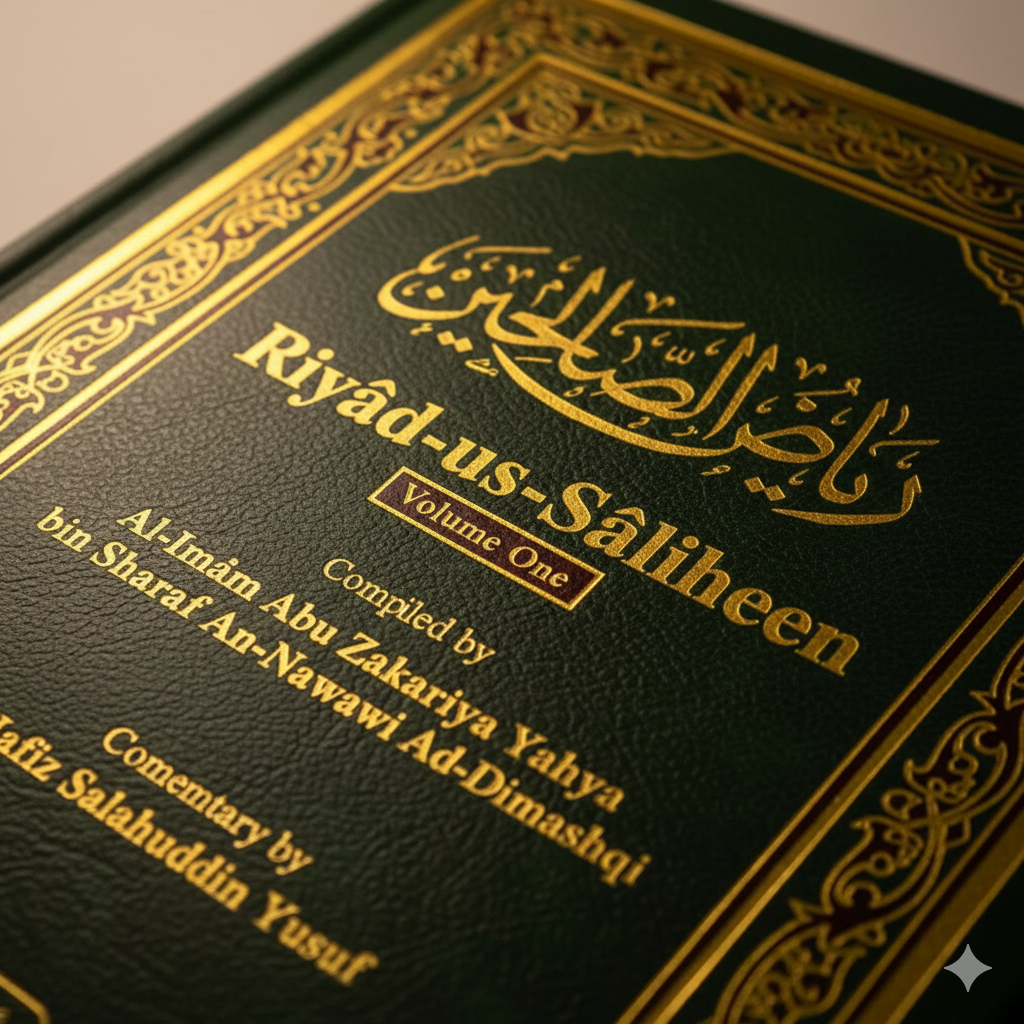 رياض الصالحين
Riyâd-us-Sâliheen
Volume One
Compiled by
Al-Imâm Abu Zakariya Yahya
bin Sharaf An-Nawawi Ad-Dimashqi
Comentary by
Hafiz Salahuddin Yusuf